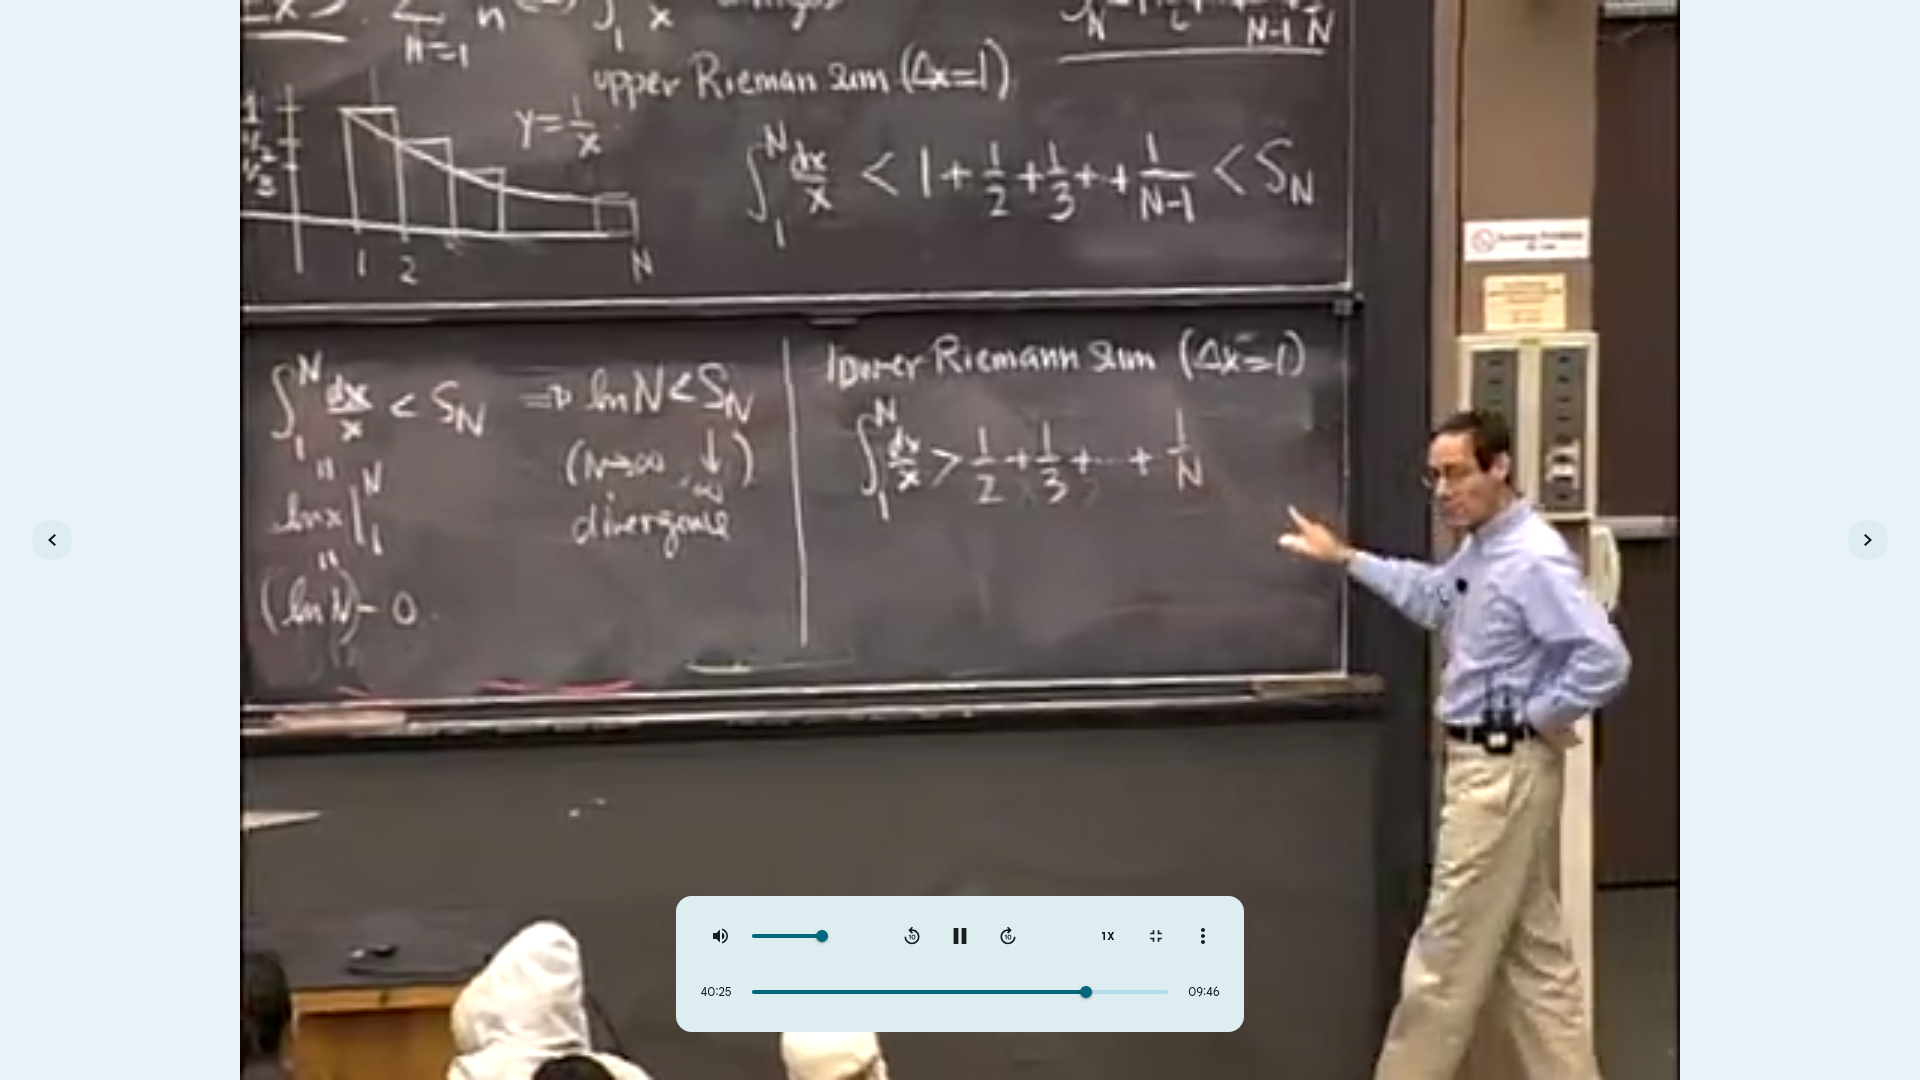 ∑ n=1 n ∫ 1 x
S_N = 1 + 1/2 + ... + 1/N-1 N
upper Rieman sum (Δx=1)
1
1/2
1/3
y = 1/x
1 2 N
∫_1^N dx/x < 1 + 1/2 + 1/3 + ·· + 1/N-1 < S_N
∫_1^N dx/x < S_N ⇒ ln N < S_N
(N→∞ ↓ ∞)
divergence
"
ln x |_1^N
"
(ln N) - 0
lower Riemann sum (Δx=1)
∫_1^N dx/x > 1/2 + 1/3 + ··· + 1/N
10
10
1X
40:25
09:46